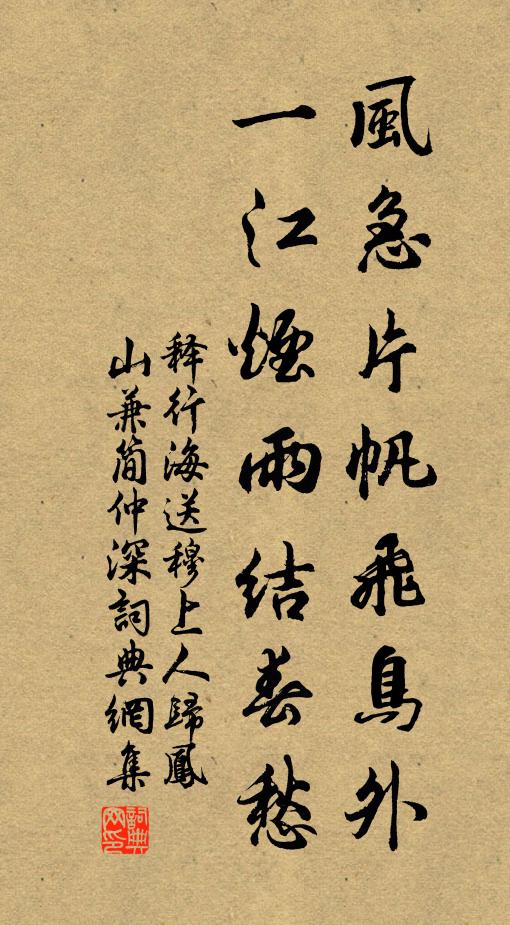 風急片帆飛鳥外
一江煙雨結春愁
释行海送穆上人歸鳳
山兼簡仲深詞典網集
詞典
网印